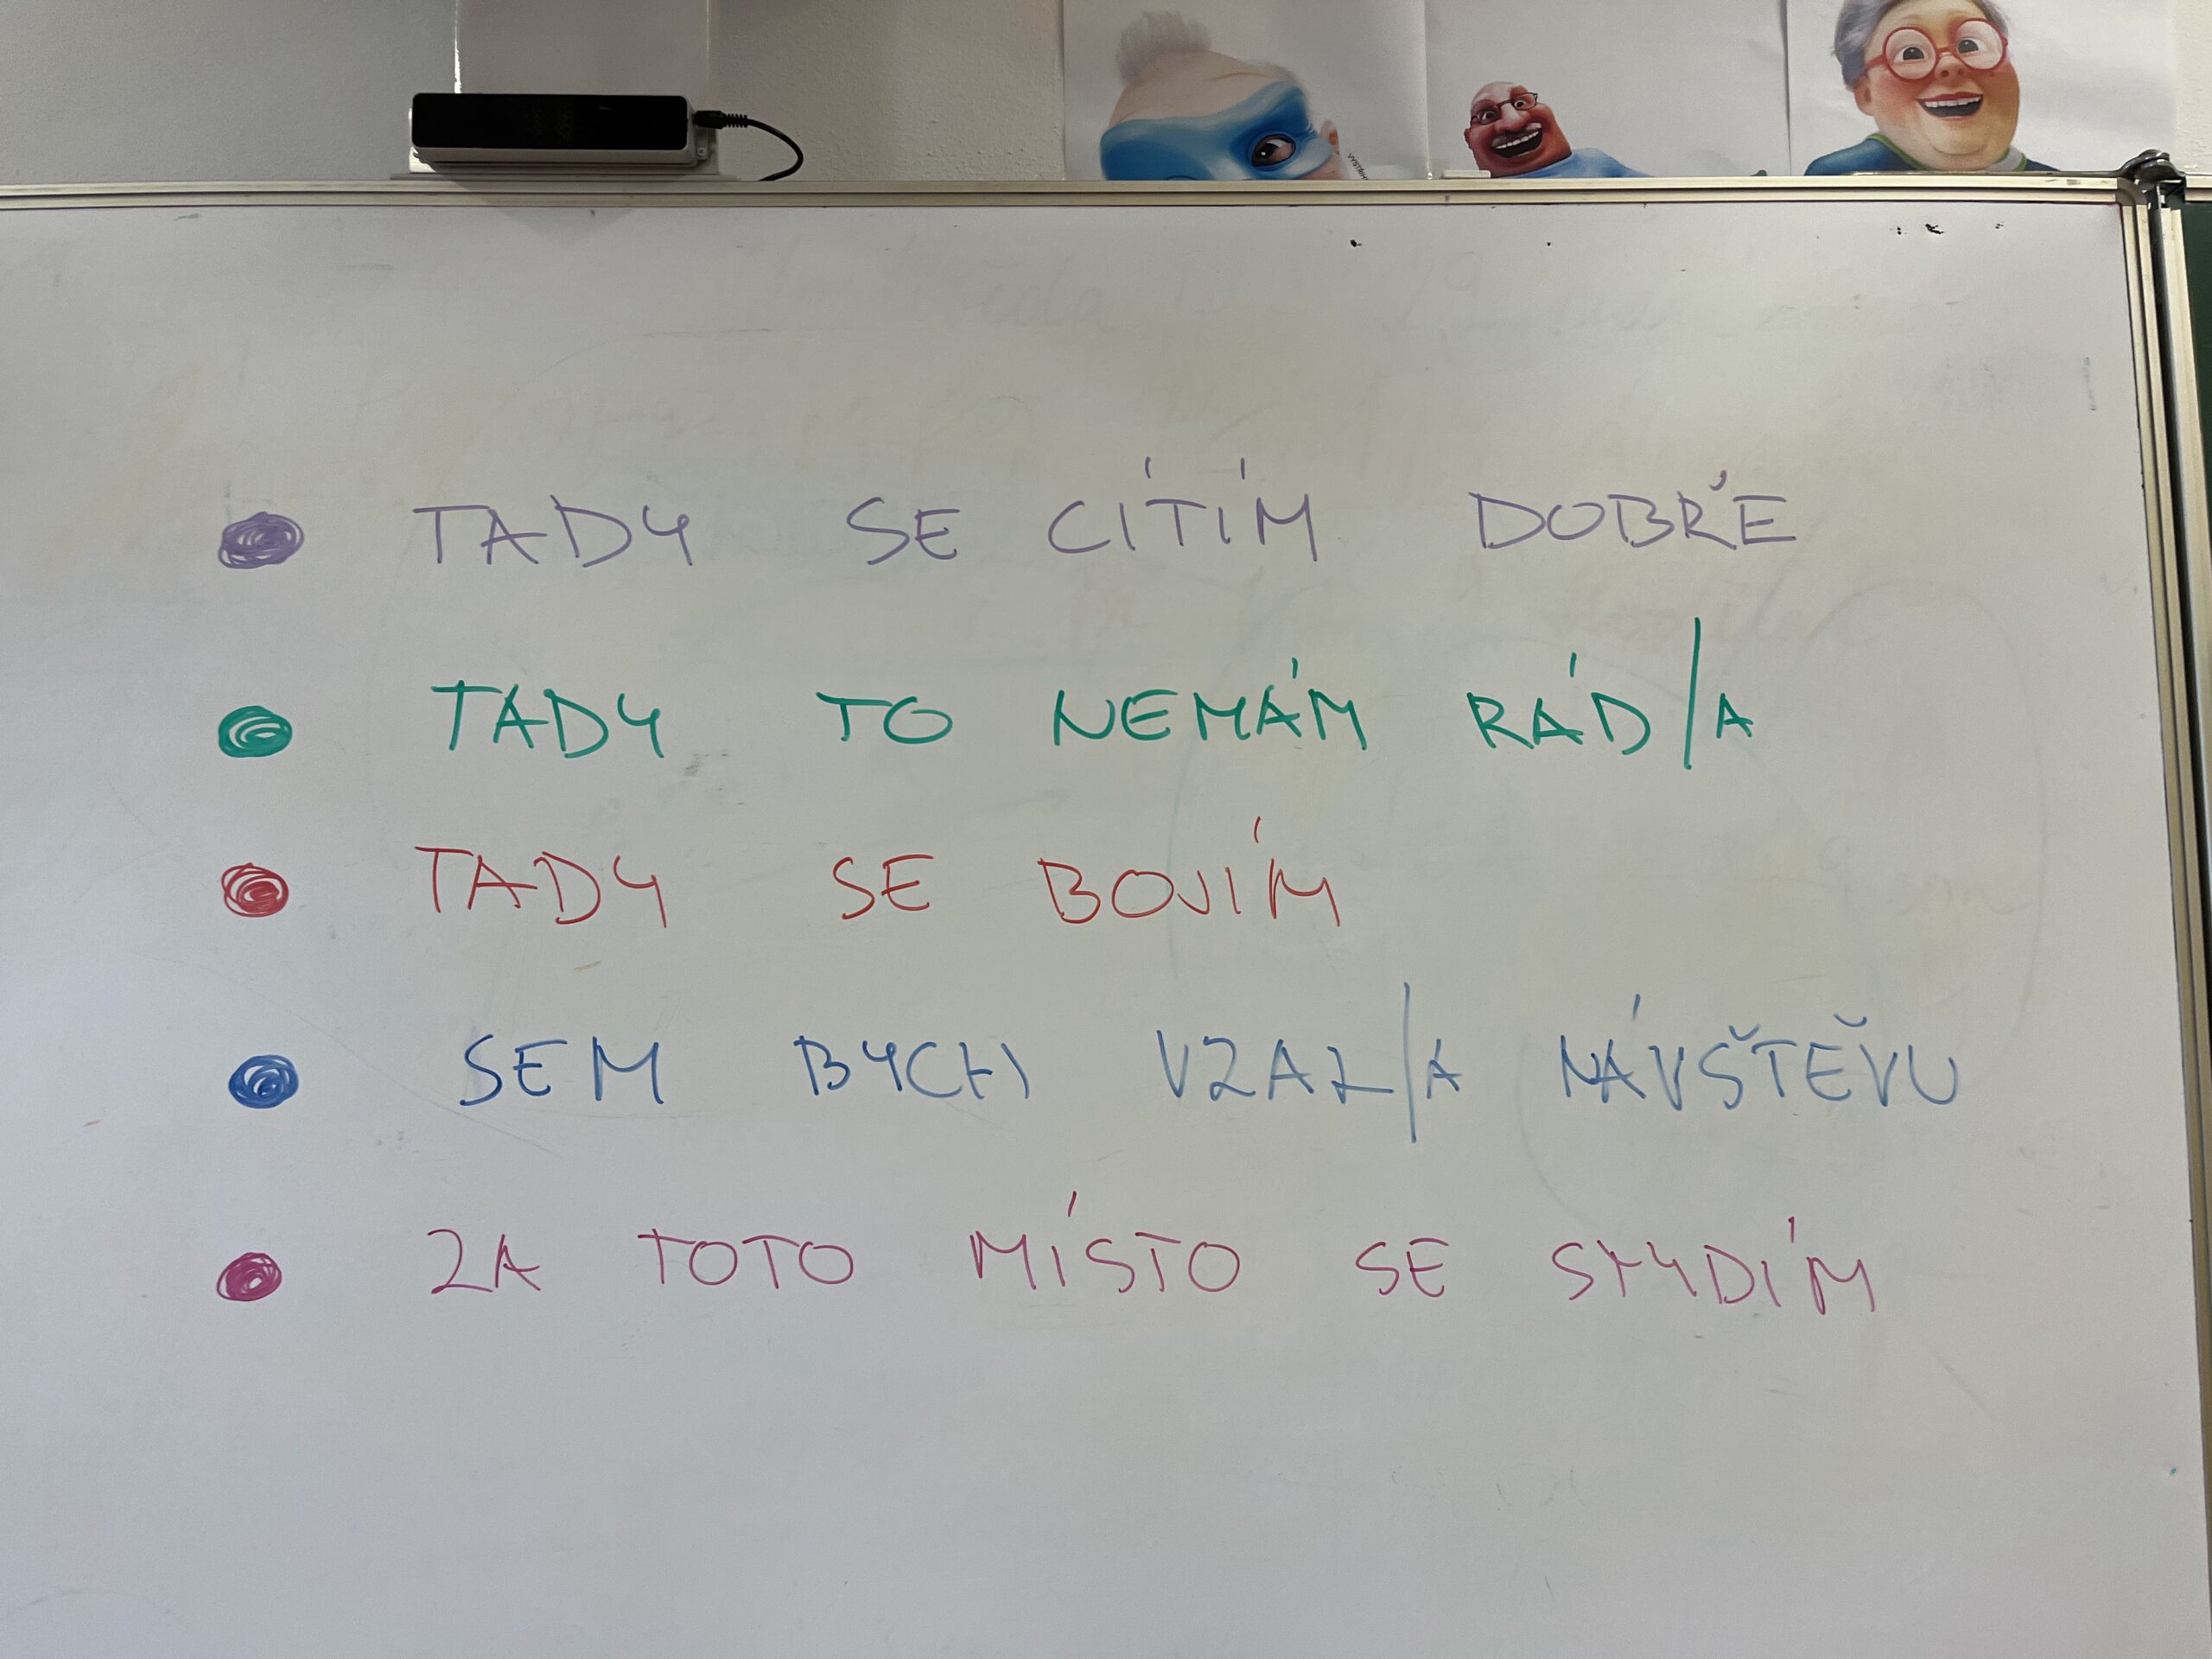 TADY SE CÍTÍM DOBŘE
TADY TO NEMÁM RÁD/A
TADY SE BOJÍM
SEM BYCH VZAL/A NÁVŠTĚVU
ZA TOTO MÍSTO SE STYDÍM